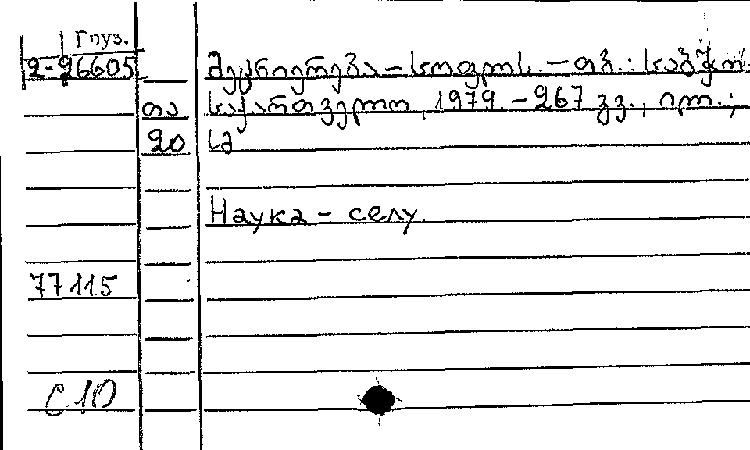 Груз.
2-26605 მეცნიერება – სოფელს. – თბ.: საბჭ.
თბ საქართველო, 1979. – 267 გვ., ილ.;
20 სმ
Наука – селу.
77115
С10